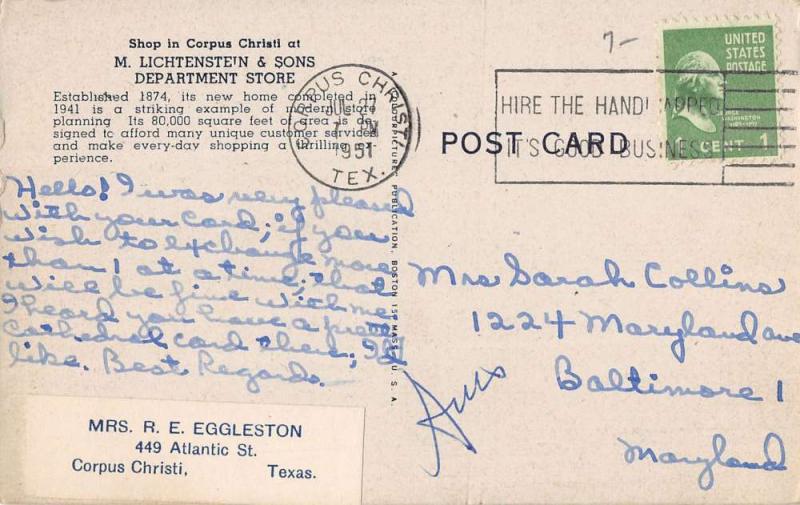 Shop in Corpus Christi at
M. LICHTENSTEIN & SONS
DEPARTMENT STORE
Established 1874, its new home completed in
1941 is a striking example of modern store
planning Its 80,000 square feet of area is de-
signed to afford many unique customer services
and make every-day shopping a thrilling ex-
perience.
Hello! I was very pleased
with your card; if you
wish to exchange more
than 1 at a time; that
will be fine with me
I heard you have a pretty
Cathedral card there; I'd
like. Best Regards.
MRS. R. E. EGGLESTON
449 Atlantic St.
Corpus Christi, Texas.
CORPUS CHRISTI
JUL 27
PM
1951
TEX.
PUBLICATION, BOSTON 15, MASS., U. S. A.
7-
HIRE THE HANDICAPPED
IT'S GOOD BUSINESS
UNITED
STATES
POSTAGE
WASHINGTON
1 CENT 1
POST CARD
Mrs Sarah Collins
1224 Maryland ave
Baltimore 1
Maryland